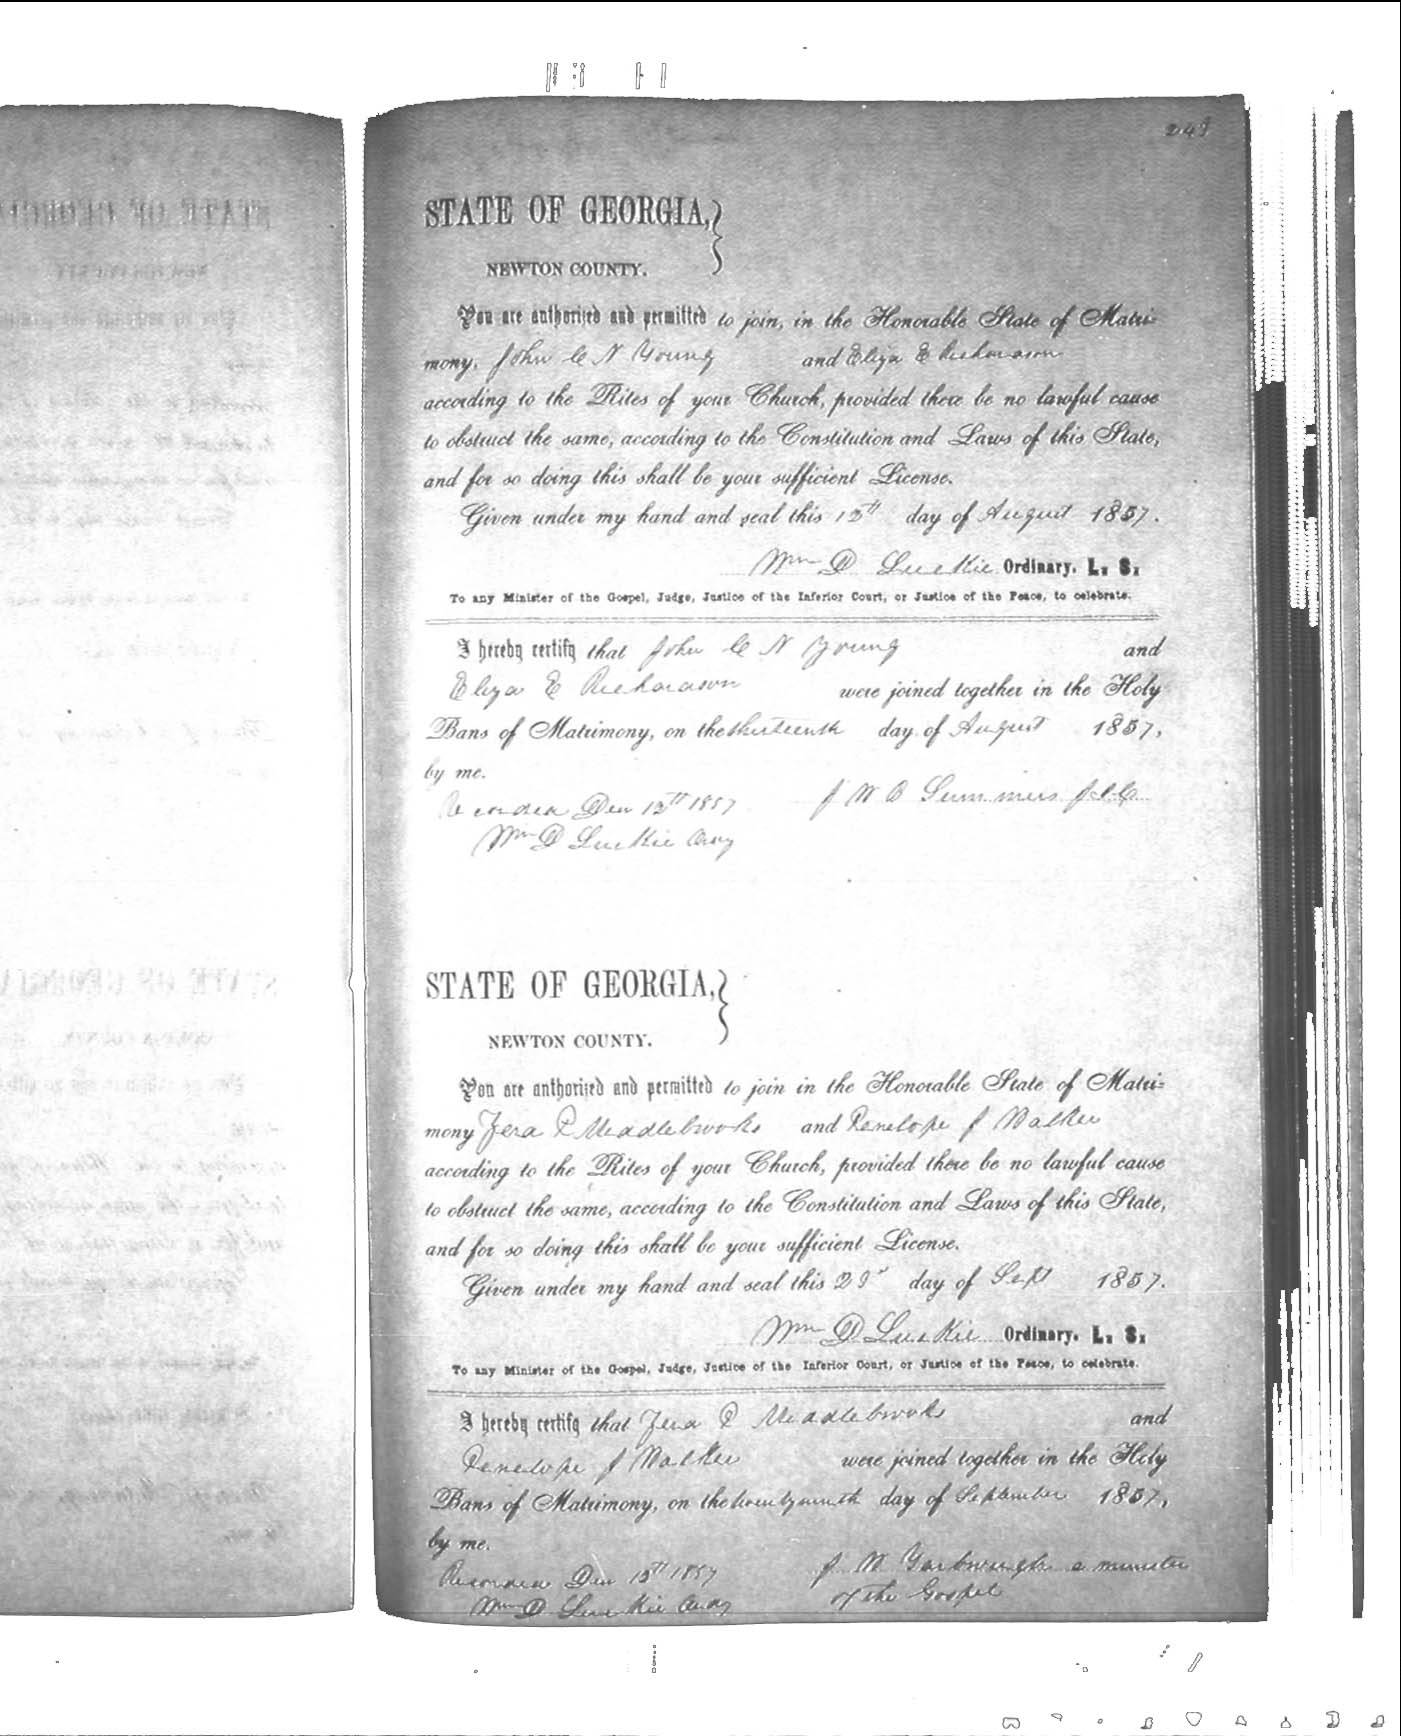 249
STATE OF GEORGIA,
NEWTON COUNTY.
You are authorized and permitted to join, in the Honorable State of Matri-
mony, John C N Young and Eliza E Richardson
according to the Rites of your Church, provided there be no lawful cause
to obstruct the same, according to the Constitution and Laws of this State,
and for so doing this shall be your sufficient License.
Given under my hand and seal this 12th day of August 1857.
Wm D Luckie Ordinary. L. S.
To any Minister of the Gospel, Judge, Justice of the Inferior Court, or Justice of the Peace, to celebrate.
I hereby certify that John C N Young and
Eliza E Richardson were joined together in the Holy
Bans of Matrimony, on the thirteenth day of August 1857,
by me.
J W B Summers J.I.C.
Recorded Dec 15th 1857
Wm D Luckie Ordy
STATE OF GEORGIA,
NEWTON COUNTY.
You are authorized and permitted to join in the Honorable State of Matri-
mony Zera P Middlebrooks and Penelope J Walker
according to the Rites of your Church, provided there be no lawful cause
to obstruct the same, according to the Constitution and Laws of this State,
and for so doing this shall be your sufficient License.
Given under my hand and seal this 29" day of Sept 1857.
Wm D Luckie Ordinary. L. S.
To any Minister of the Gospel, Judge, Justice of the Inferior Court, or Justice of the Peace, to celebrate.
I hereby certify that Zera P Middlebrooks and
Penelope J Walker were joined together in the Holy
Bans of Matrimony, on the twentyninth day of September 1857,
by me.
J W Yarbrough a minister
of the Gospel
Recorded Dec 15th 1857
Wm D Luckie Ordy